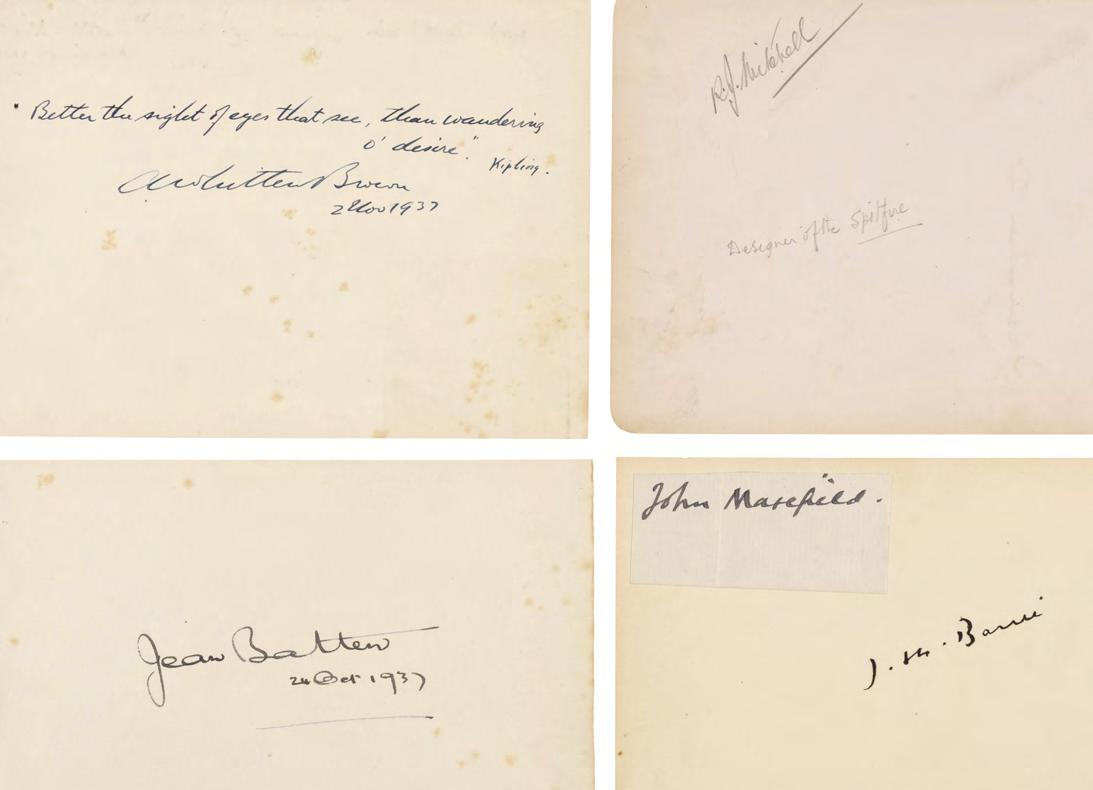 "Better the sight of eyes that see, than wandering
o' desire".
Kipling.
A Whitten Brown
2 Nov 1937
R.J. Mitchell
Designer of the Spitfire
Jean Batten
24 Oct 1937
John Masefield.
J. M. Barrie